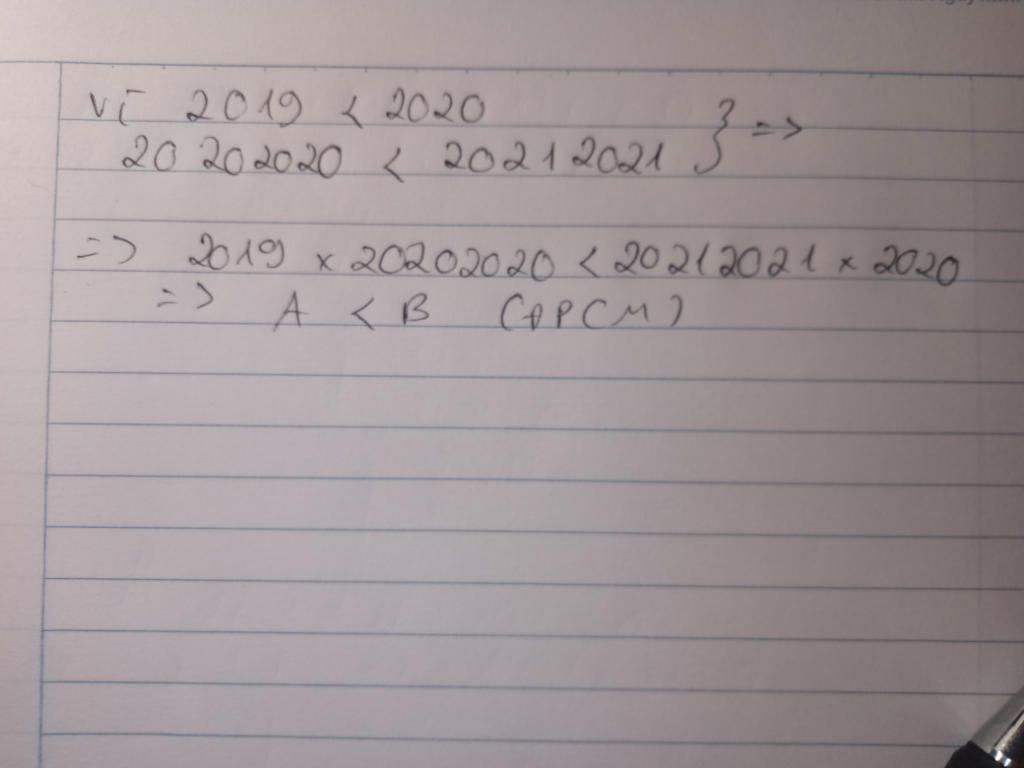 Vì 2019 < 2020
20202020 < 20212021 } =>
=> 2019 x 20202020 < 20212021 x 2020
=> A < B (ĐPCM)